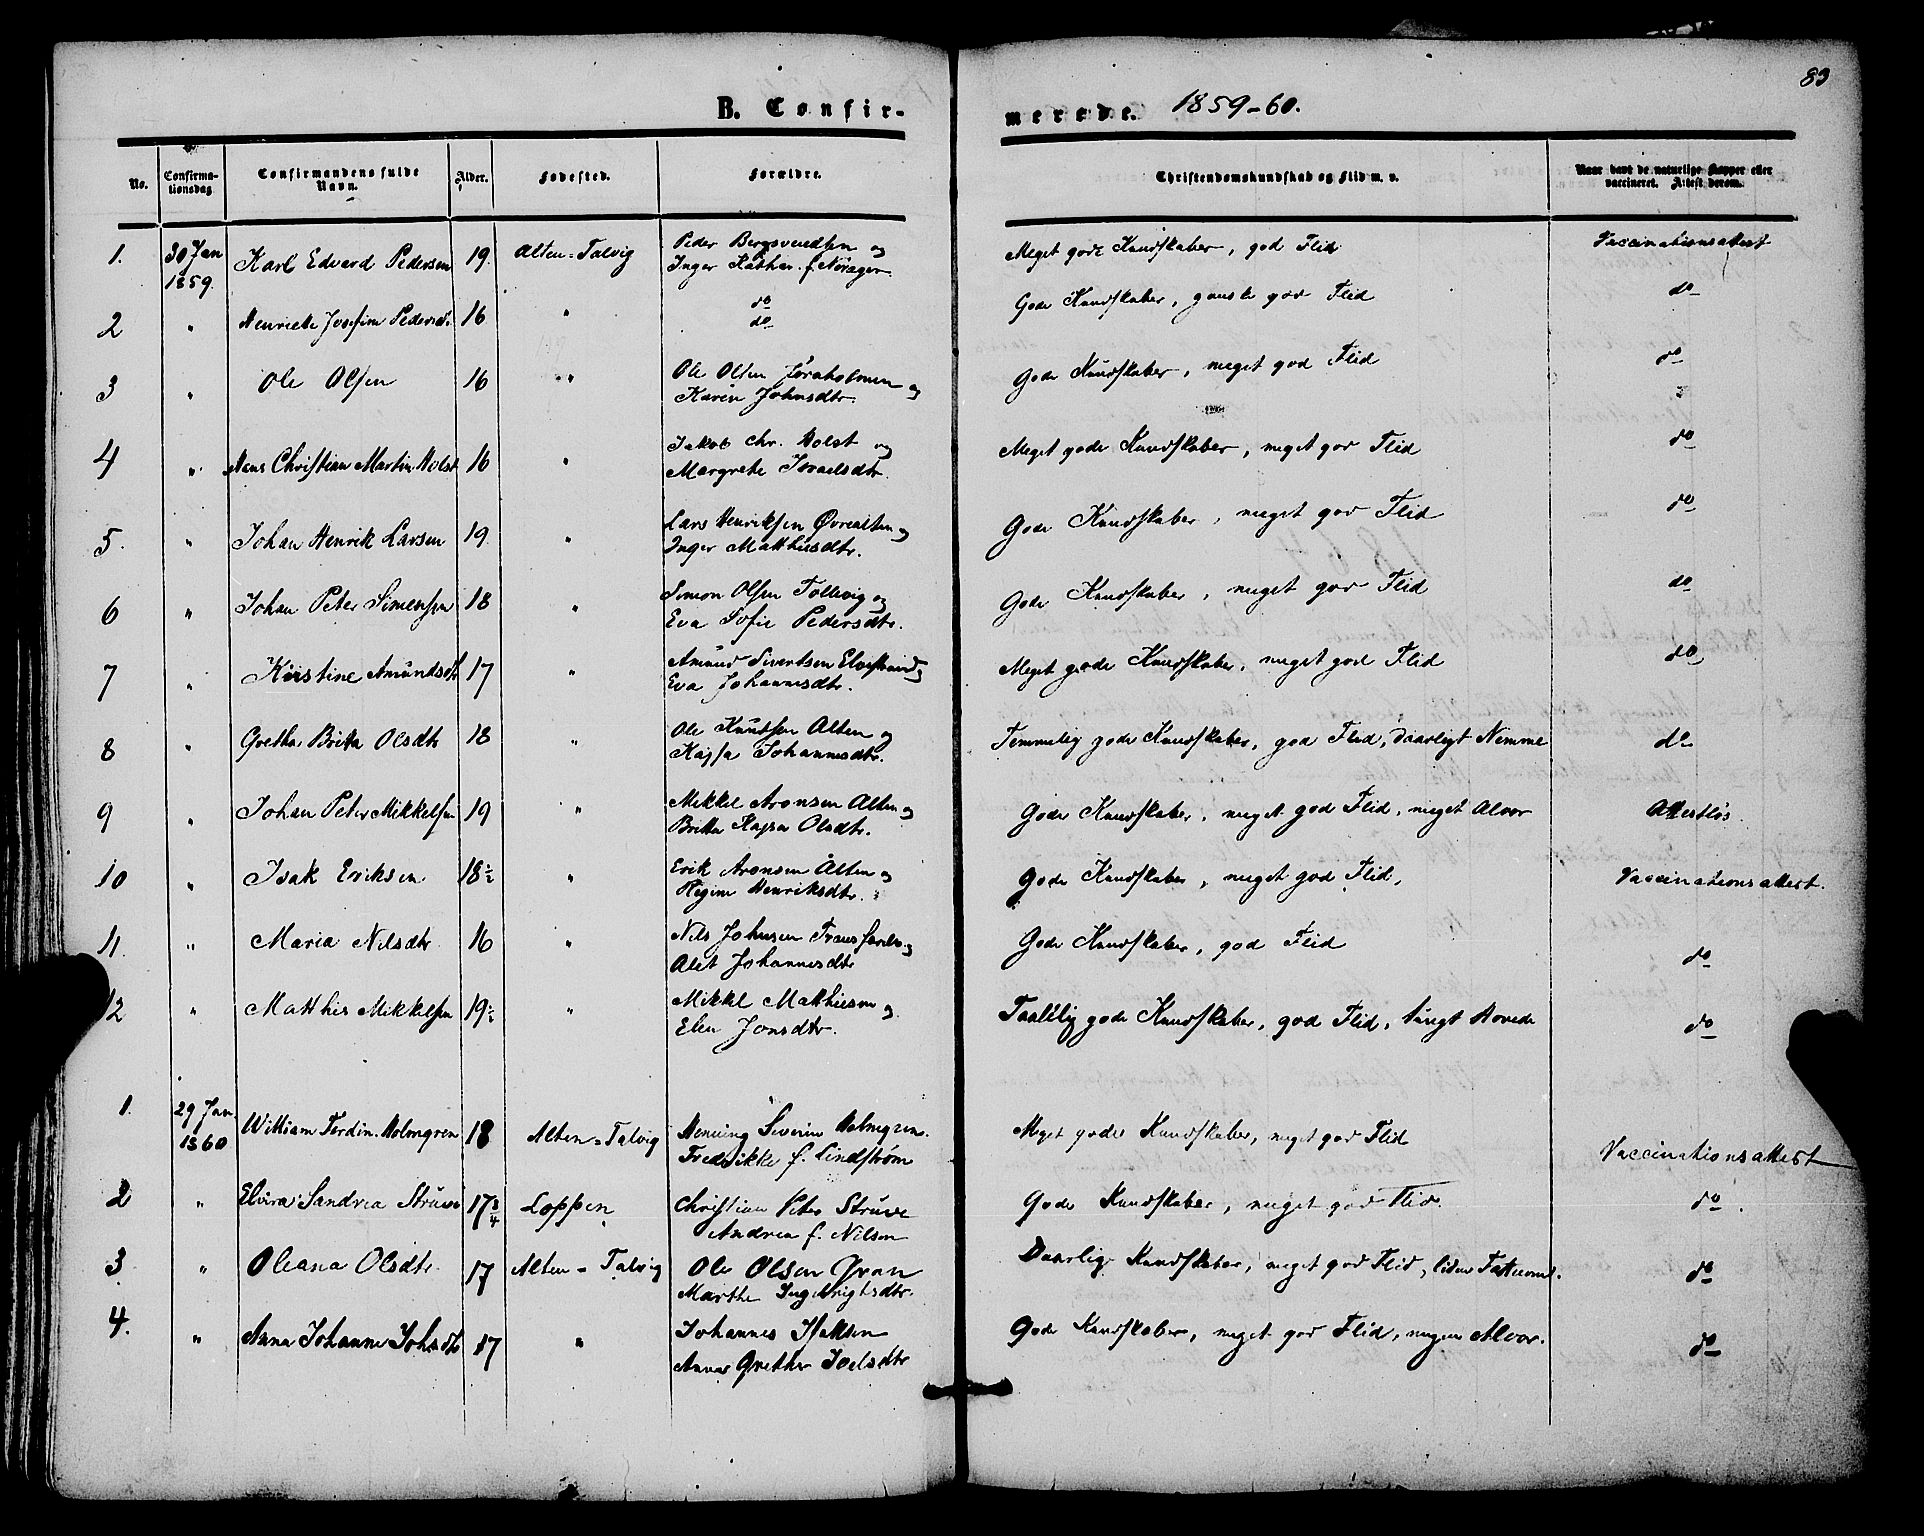 83
B. Confirmerede. 1859-60.
No. Confirmationsdag Confirmandens fulde Navn. Alder. Fødested. Forældre. Christendomskundskab og Flid m. v. Naar havt de naturlige Kopper eller vaccineret. Attest derom.
1. 30 Jan 1859. Karl Edvard Pedersen 19. Alten-Talvig Peder Bergsvendsen og Inger Kathar. f. Meget gode Kundskaber, god Flid Vaccinationsattest
2 " Henriette Josefine Pedersd. 16 " do do Gode Kundskaber, ganske god Flid do
3 " Ole Olsen 16 " Ole Olsen Jøraholmen og Karen Johnsdtr. Gode Kundskaber, meget god Flid do
4 " Hans Christian Martin Holst 16 " Jakob Chr. Holst og Margrete Israelsdtr. Meget gode Kundskaber, meget god Flid do
5. " Johan Henrik Larsen 19 " Lars Henriksen Øvrealten og Inger Matthisdtr. Gode Kundskaber, meget god Flid do
6 " Johan Peter Simensen 18 " Simon Olsen Tollevig og Eva Sofie Pedersdtr. Gode Kundskaber, meget god Flid do
7 " Kirstine Amundsdtr 17 " Amund Sivertsen Elvestrand og Eva Johannesdtr. Meget gode Kundskaber, meget god Flid do
8 " Grethe Britta Olsdtr 18 " Ole Knutsen Alten og Kajsa Johannesdtr. Temmelig gode Kundskaber, god Flid, daarligt Nemme do
9 " Johan Peter Mikkelsen 19 " Mikkel Aronsen Alten og Britta Kajsa Olsdtr. Gode Kundskaber, meget god Flid, meget Alvor Attestløs.
10 " Isak Eriksen 18½ " Erik Aronsen Alten og Regine Henriksdtr. Gode Kundskaber, meget god Flid, Vaccinationsattest.
11. " Maria Nilsdtr 16 " Nils Johnsen og Alet Johannesdtr Gode Kundskaber, god Flid do
12 " Matthis Mikkelsen 19½ " Mikkel Mathiesen og Elen Jonsdtr. Taalelig gode Kundskaber, god Flid, tungt Hovede do
1. 29 Jan. 1860 William Ferdin. Holmgren 18 Alten-Talvig Henning Severin Holmgren. Fredrikke f. Lindstrøm Meget gode Kundskaber, meget god Flid Vaccinationsattest
2 " Elvira Sandrea Struve 17¾ Loppen Christian Peter Struve Andrea f. Nilsen Gode Kundskaber, meget god Flid. do.
3. " Oleana Olsdtr. 17 Alten-Talvig Ole Olsen Gran Marthe Ingebrigtsdtr. Daarlige Kundskaber, meget god Flid, liden Fatteevne. do
4. " Anna Johanne Johsdtr 17 " Johannes Isaksen Anna Grethe Joelsdtr Gode Kundskaber, meget god Flid, megen Alvor. do